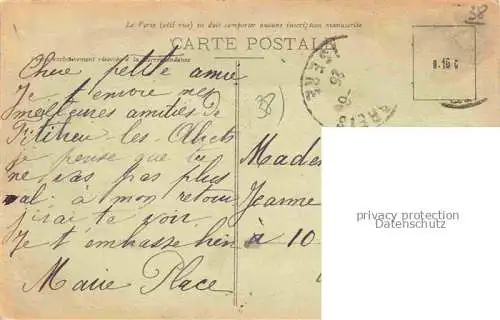 Le Porte (côté vue) ne doit comporter aucune inscription manuscrite
CARTE POSTALE
réservé à la correspondance
38
0.16 G
ISERE
25
Chere petite amie
Je t envoie mes
meilleures amities de
les
je pense que tu
ne vas pas plus
mal. à mon retour
j irai te voir
Je t embrasse bien
Marie Place
38
Made
Jeanne
à 10
privacy protection
Datenschutz